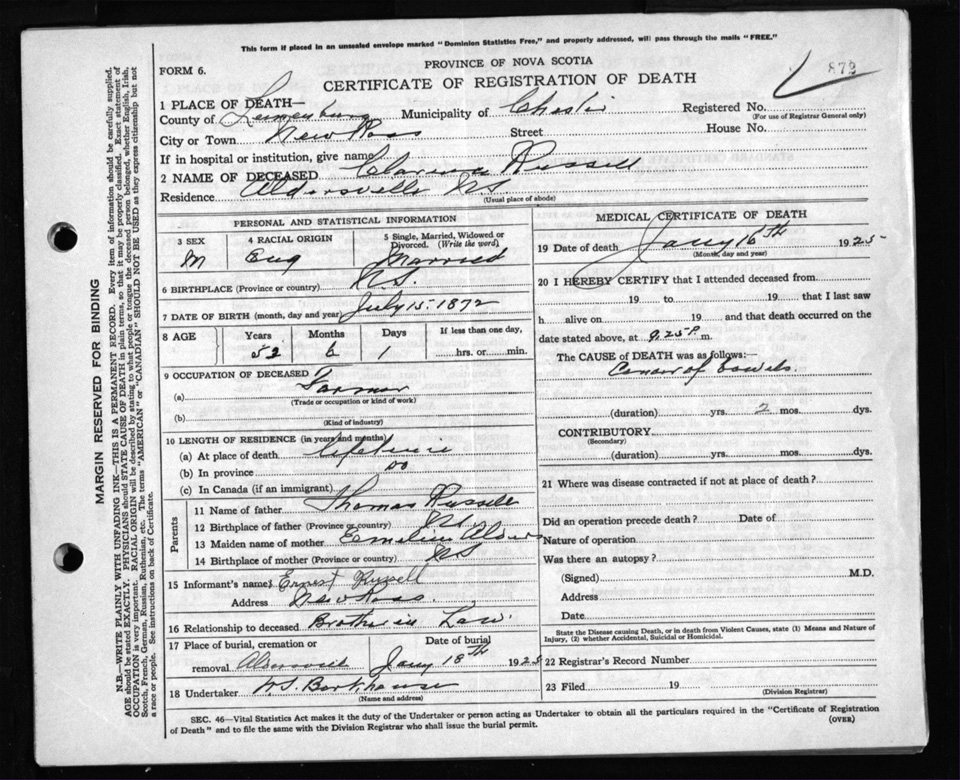 This form if placed in an unsealed envelope marked "Dominion Statistics Free," and properly addressed, will pass through the mails "FREE."
PROVINCE OF NOVA SCOTIA
FORM 6.
CERTIFICATE OF REGISTRATION OF DEATH
872
1 PLACE OF DEATH—
County of Lunenburg Municipality of Chester Registered No.
(For use of Registrar General only)
City or Town New Ross Street House No.
If in hospital or institution, give name
2 NAME OF DECEASED Clarence Russell
Residence Aldersville N.S.
(Usual place of abode)
PERSONAL AND STATISTICAL INFORMATION
3 SEX 4 RACIAL ORIGIN 5 Single, Married, Widowed or Divorced. (Write the word)
M Eng Married
6 BIRTHPLACE (Province or country) N.S.
7 DATE OF BIRTH (month, day and year) July 15-1872
8 AGE Years Months Days If less than one day,
52 6 1 hrs. or min.
9 OCCUPATION OF DECEASED
(a) Farmer
(Trade or occupation or kind of work)
(b)
(Kind of industry)
10 LENGTH OF RESIDENCE (in years and months)
(a) At place of death Lifetime
(b) In province Do
(c) In Canada (if an immigrant)
Parents
11 Name of father Thomas Russell
12 Birthplace of father (Province or country) N.S.
13 Maiden name of mother
14 Birthplace of mother (Province or country) N.S.
15 Informant's name Ernest Russell
Address New Ross.
16 Relationship to deceased Brother in Law.
17 Place of burial, cremation or removal Date of burial
Jany 18th 1925
18 Undertaker
(Name and address)
MEDICAL CERTIFICATE OF DEATH
19 Date of death Jany 16th 1925
(Month, day and year)
20 I HEREBY CERTIFY that I attended deceased from
19 to 19 that I last saw
h alive on 19 and that death occurred on the
date stated above, at 9.25 P. m.
The CAUSE OF DEATH was as follows:—
Cancer of bowels.
(duration) yrs. 2 mos. dys.
CONTRIBUTORY
(Secondary)
(duration) yrs. mos. dys.
21 Where was disease contracted if not at place of death?
Did an operation precede death? Date of
Nature of operation
Was there an autopsy?
(Signed) M.D.
Address
Date
State the Disease causing Death, or in death from Violent Causes, state (1) Means and Nature of Injury, (2) whether Accidental, Suicidal or Homicidal.
22 Registrar's Record Number
23 Filed 19
(Division Registrar)
SEC. 46—Vital Statistics Act makes it the duty of the Undertaker or person acting as Undertaker to obtain all the particulars required in the "Certificate of Registration
of Death" and to file the same with the Division Registrar who shall issue the burial permit. (OVER)
MARGIN RESERVED FOR BINDING
N.B.—WRITE PLAINLY WITH UNFADING INK—THIS IS A PERMANENT RECORD. Every item of information should be carefully supplied.
AGE should be stated EXACTLY. PHYSICIANS should STATE CAUSE OF DEATH in plain terms, so that it may be properly classified. Exact statement of
OCCUPATION is very important. RACIAL ORIGIN will be described by stating to what people or tongue the deceased person belonged, whether English, Irish,
Scotch, French, German, Russian, Ruthenian, etc. The terms "AMERICAN" or "CANADIAN" SHOULD NOT BE USED as they express citizenship but not
a race or people. See instructions on back of Certificate.